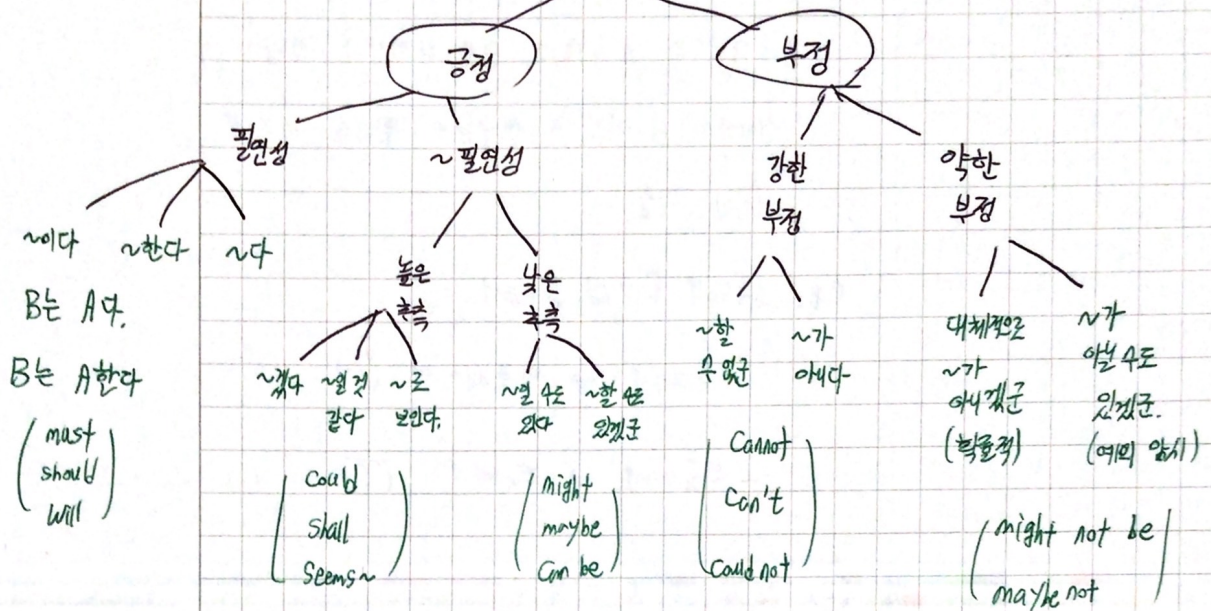 긍정
부정
필연성
~ 필연성
강한
부정
약한
부정
~이다
~한다
~다
B는 A다.
B는 A한다
must
should
will
높은
추측
낮은
추측
~겠다
~일 것
같다
~로
보인다.
~일 수도
있다
~할 수도
있겠군
could
shall
seems~
might
maybe
can be
~할
수 없군
~가
아니다
cannot
can't
could not
대체적으로
~가
아니겠군
(확률적)
~가
아닐 수도
있겠군.
(예외 암시)
might not be
maybe not